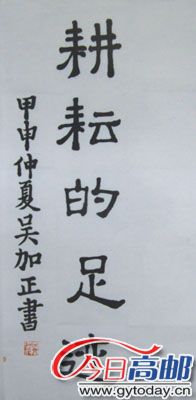 耕耘的足迹
甲申仲夏吴加正書
今日高邮
www.gytoday.cn